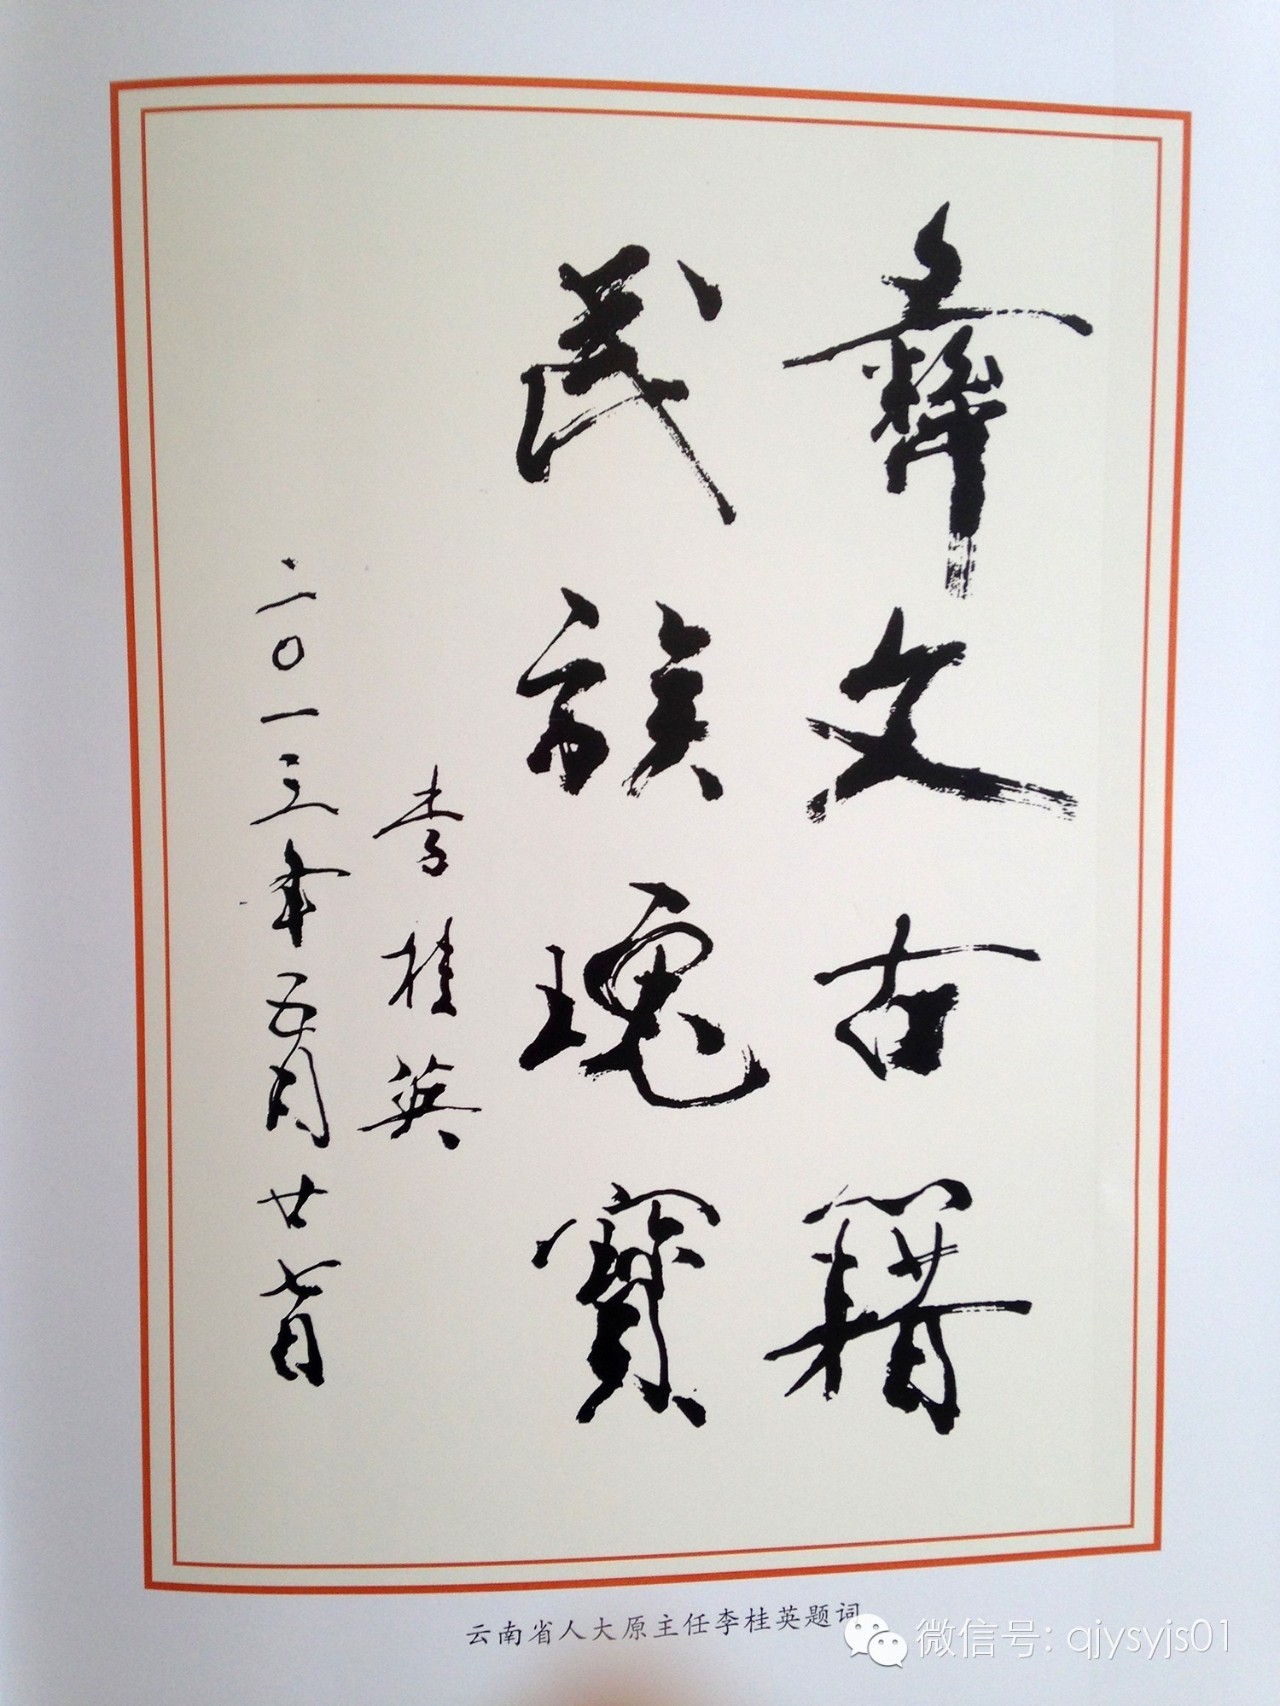 彝文古籍
民族瑰寳
李桂英
二〇一三年五月廿七日
云南省人大原主任李桂英题词
微信号: qjysyjs01